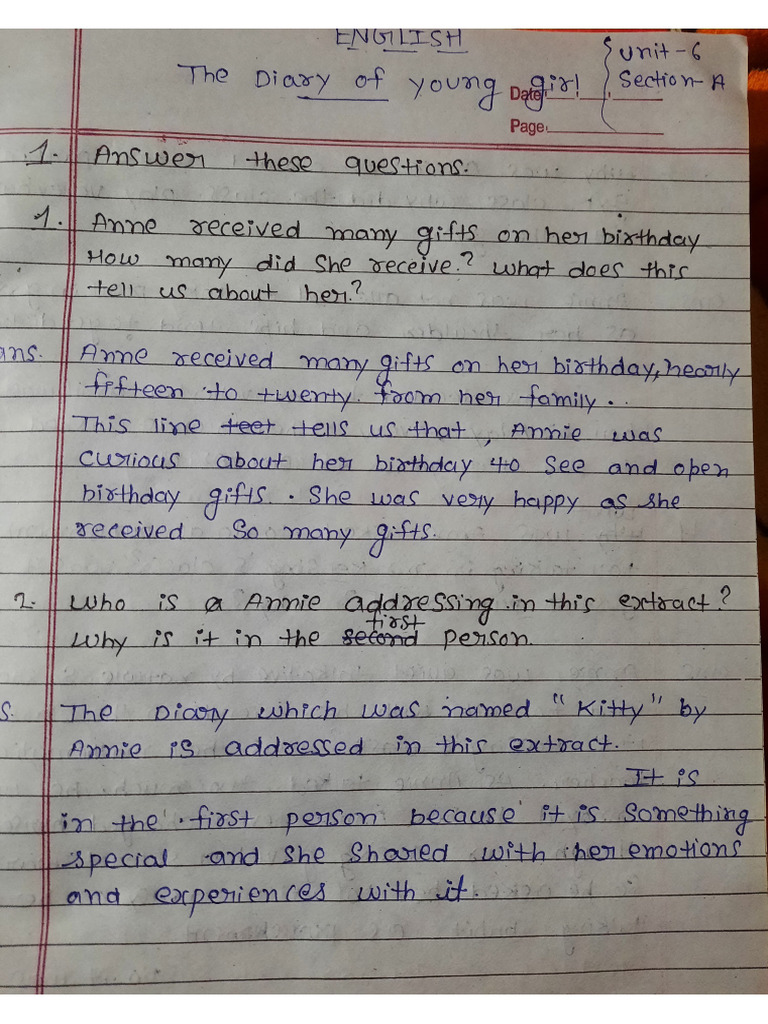 ENGLISH
The Diary of young girl
Unit-6
Section-A
Date
Page
1. Answer these questions.
1. Anne received many gifts on her birthday
How many did she receive? What does this
tell us about her?
ans. Anne received many gifts on her birthday, nearly
fifteen to twenty from her family.
This line teet tells us that, Annie was
curious about her birthday to see and open
birthday gifts. She was very happy as she
received so many gifts.
2. Who is a Annie addressing in this extract?
first
Why is it in the second person.
s. The Diary which was named "Kitty" by
Annie is addressed in this extract.
It is
in the first person because it is something
special and she shared with her emotions
and experiences with it.